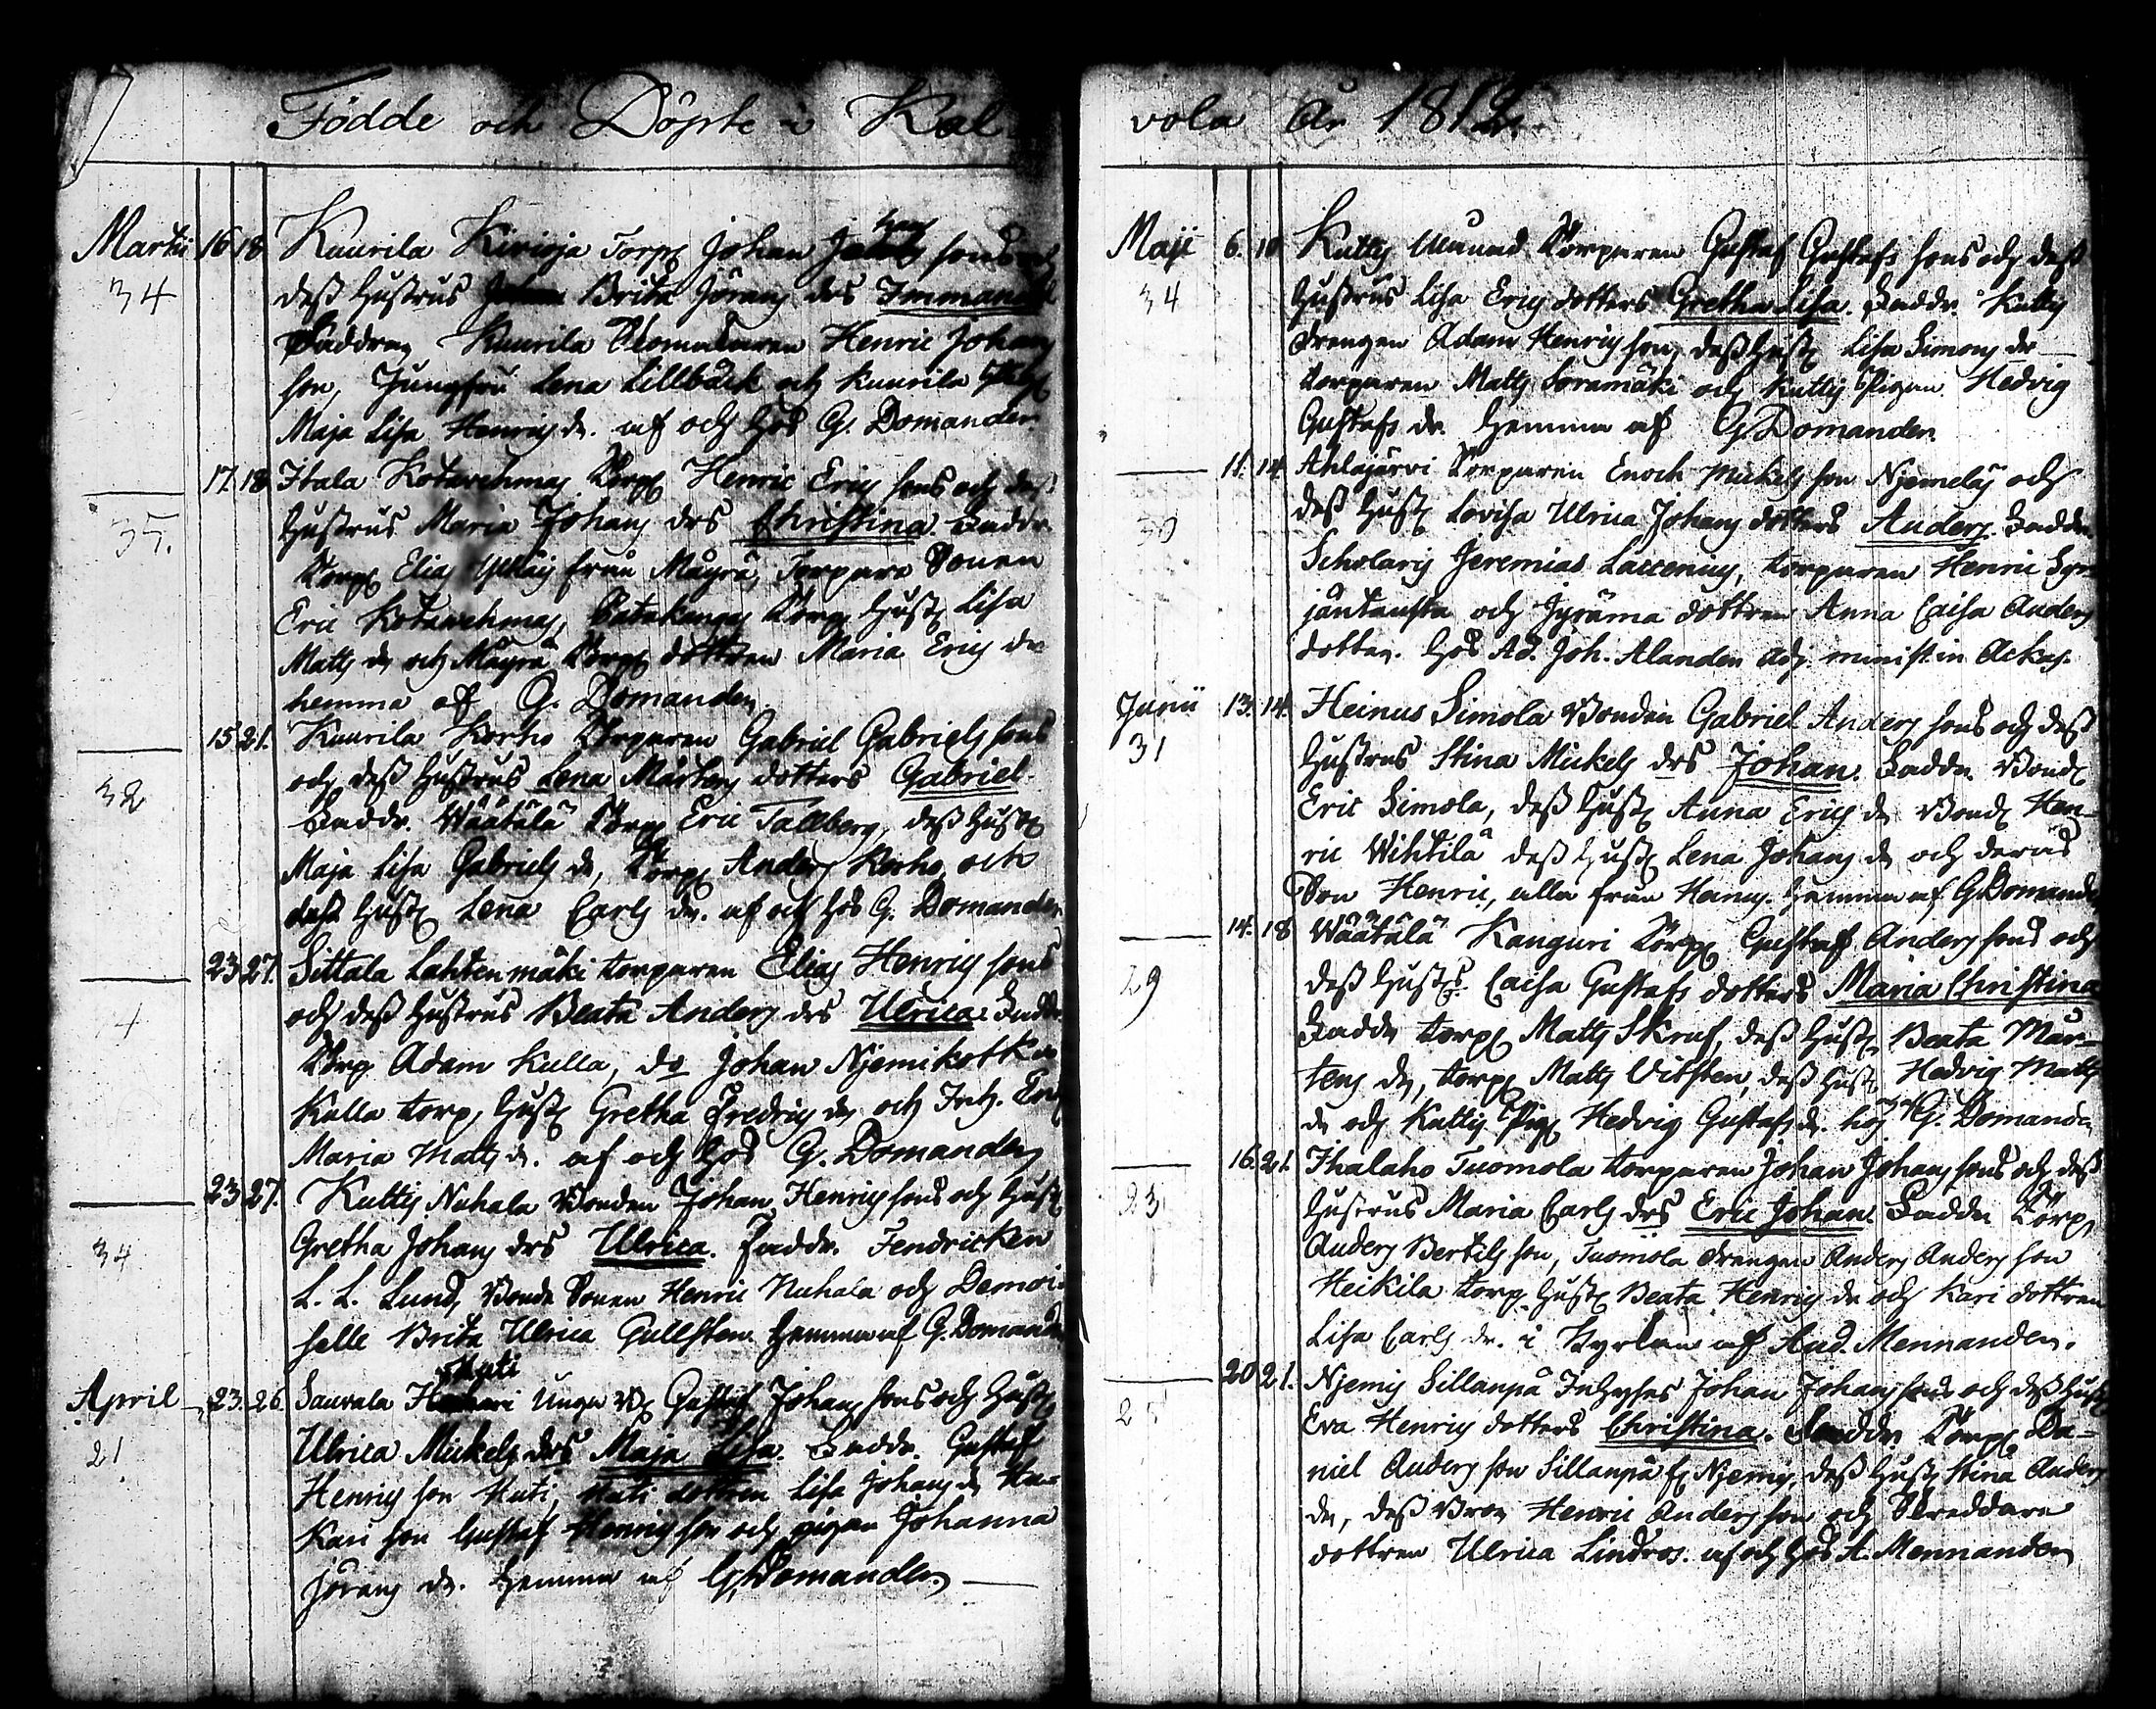 Födde och Döpte i Kal-
vola År 1812.
Martii 16 18 Kuurila Kirioja Torp Johan sons och
34 dess Hustrus Brita Jörans drs Immanuel
Faddrar Kuurila Henric Johans
son, Jungfru Lena Lillbäck och Kuurila
Maja Lisa Henrics dr. af och hos G. Domander
17. 18 Ittala Kotavehmas Torp Henric Erics sons och dess
35. Hustrus Maria Johans drs Christina. Faddr.
Torp Elias från Mäyrä, Torpare Sonen
Eric Kotavehmas, Torp Hust Lisa
Matts dr och Mäyrä Torp dottren Maria Erics dr
hemma af G. Domander
15 21. Kuurila Korho Torparen Gabriel Gabriels sons
32 och dess Hustrus Lena Mårtens dotters Gabriel.
Faddr. Wäätälä Torp Eric Tallberg, dess Hust
Maja Lisa Gabriels dr, Torp Anders Korho och
dess Hust Lena Carls dr. af och hos G. Domander
23 27. Sittala Lahtenmäki torparen Elias Henrics sons
och dess Hustrus Beata Anders drs Ulrica. Faddr.
Torp Adam Kulla, do Johan Njemikotka
Kulla torp, Hust Gretha Fredrics dr och Inh.
Maria Matts dr. af och hos G. Domander
23 27. Kuttis Nuhala Bonden Johan Henrics sons och Hust
34 Gretha Johans drs Ulrica. Faddr. Fendricken
L. L. Lund, Bonde Sonen Henric Nuhala och Demoi-
selle Brita Ulrica Gullsten. Hemma af G. Domander
Huti
April 23. 26. Sauvala Unga B Gustaf Johans sons och Hust
21 Ulrica Mickels drs Maja Lisa. Faddr. Gustaf
Henrics son Huti, Huti dottren Lisa Johans dr Ha-
kari son Gustaf Henrics son och pigan Johanna
Jörans dr. Hemma af G. Domander
Maji 6. 10 Kuttis Torparen Gustaf Gustafs sons och dess
34 Hustrus Lisa Erics dotters Gretha Lisa. Faddr. Kuttis
drengen Adam Henrics son, dess Hust Lisa Simons dr
torparen Matts Soramäki och Kuttis Pigan Hedvig
Gustafs dr. Hemma af G. Domander.
11. 14 Ahlajärvi Torparen Enoch Mickels son Njemeläs och
30 dess Hust Lovisa Ulrica Johans dotters Anders. Faddr
Scholaris Jeremias Laccenius, torparen Henric Syr-
jäntausta och Jyräma dottren Anna Caisa Anders
dotter. hos Ad. Joh. Alander adj. minist. in Ackas.
Junii 13. 14. Heinus Simola Bonden Gabriel Anders sons och dess
31 Hustrus Stina Mickels drs Johan. Faddr. Bond
Eric Simola, dess Hust Anna Erics dr Bond Hen-
ric Wihtilä dess Hust Lena Johans dr och deras
Son Henric, alla från Heinus. Hemma af G Domander
14. 18 Wäätälä Kanguri Torp Gustaf Anders sons och
29 dess Hust Caisa Gustafs dotters Maria Christina
Faddr torp Matts Skruf, dess Hust Beata Mår-
tens dr, torp Matts Vitsten, dess Hust Hedvig Matts
dr och Kuttis Pig Hedvig Gustafs dr. hos G. Domander
16. 21. Ihalaho Tuomola torparen Johan Johans sons och dess
23 Hustrus Maria Carls drs Eric Johan. Faddr Torp,
Anders Bertils son, Tuomola drengen Anders Anders son
Heikila torp Hust Beata Henrics dr och Kari dottren
Lisa Carls dr. i Kyrkan af And. Mennander.
20 21. Njemis Sillanpä Inhyses Johan Johans sons och dess Hust
25 Eva Henrics dotters Christina. Faddr. Torp Da-
niel Anders son Sillanpä f Njemis, dess Hust Stina Anders
dr, dess Bror Henric Anders son och Skreddare
dottren Ulrica Lindros. af och hos A. Mennander